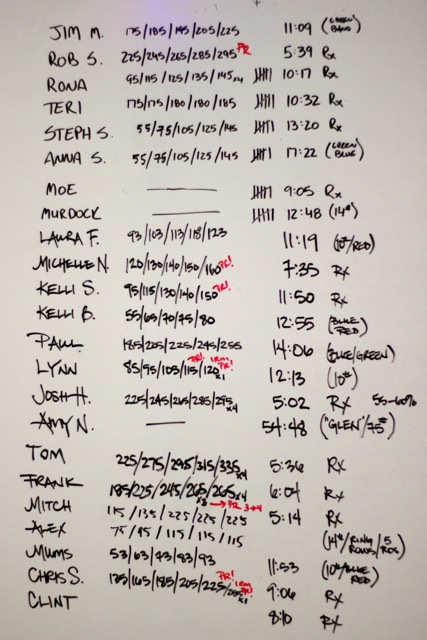 JIM M. 175/185/195/205/225 11:09 (GREEN BAND)
ROB S. 225/245/265/285/295 PR 5:39 Rx
RONA 95/115/125/135/145x4 10:17 Rx
TERI 175/175/180/180/185 10:32 Rx
STEPH S. 55/75/105/125/145 13:20 Rx
ANNA S. 55/75/105/125/145 17:22 (GREEN BLUE)
MOE 9:05 Rx
MURDOCK 12:48 (14")
LAURA F. 93/103/113/118/123 11:19 (10#/RED)
MICHELLE N. 120/130/140/150/160 PR! 7:35 Rx
KELLI S. 95/115/130/140/150 PR! 11:50 Rx
KELLI B. 55/65/70/75/80 12:55 (BLUE RED)
PAUL 185/205/225/245/255 14:06 (BLUE/GREEN)
LYNN 85/95/105/115/120x1 PR! 1RM PR! 12:13 (10#)
JOSH H. 225/245/265/285/295x4 5:02 Rx 55-60%
AMY N. 54:48 ("GLEN"/75#)
TOM 225/275/295/315/335x4 5:36 Rx
FRANK 185/225/245/265/265x4 6:04 Rx
MITCH 115/135/225/225/225 x3 → PR 3→4 5:14 Rx
ALEX 75/95/115/115/115 (14#/RING ROWS/5
MUMS 53/63/73/83/93 11:53 (10#/BLUE RED)
CHRIS S. 135/165/185/205/225 PR! 1RM PR! x1 9:06 Rx
CLINT 8:10 Rx